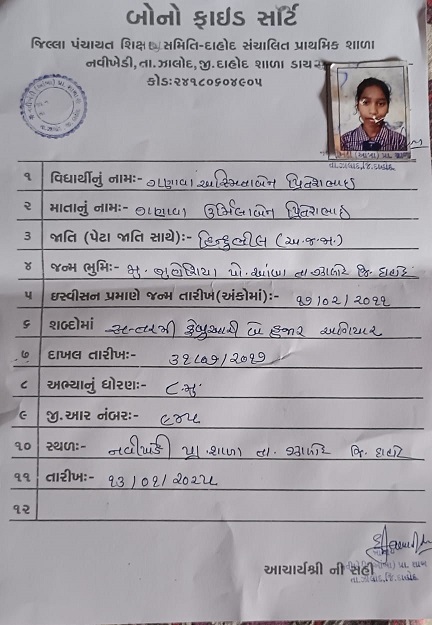 બોનો ફાઇડ સર્ટિ
જિલ્લા પંચાયત શિક્ષણ સમિતિ-દાહોદ સંચાલિત પ્રાથમિક શાળા
નવીખેડી, તા.ઝાલોદ, જી.દાહોદ શાળા ડાયસ
કોડ:૨૪૧૮૦૬૦૪૯૦૫
૧ વિદ્યાર્થીનું નામ:- ગણાવા અસ્મિતાબેન
૨ માતાનું નામ:- ગણાવા ઉર્મિલાબેન
૩ જાતિ (પેટા જાતિ સાથે):- હિન્દુભીલ (અ.જ.જા.)
૪ જન્મ ભુમિ:- મુ. પો. તા. ઝાલોદ જિ. દાહોદ
૫ ઇસ્વીસન પ્રમાણે જન્મ તારીખ(અંકોમાં):- ૧૭/૦૨/૨૦૧૧
૬ શબ્દોમાં સત્તરમી ફેબ્રુઆરી બે હજાર અગિયાર
૭ દાખલ તારીખ:-
૮ અભ્યાનું ધોરણ:- ૮ મું
૯ જી.આર નંબર:- ૯૪૫
૧૦ સ્થળ:- નવીખેડી પ્રા. શાળા તા. ઝાલોદ જિ. દાહોદ
૧૧ તારીખ:- ૧૩/૦૧/૨૦૨૫
૧૨
આચાર્યશ્રી ની સહી